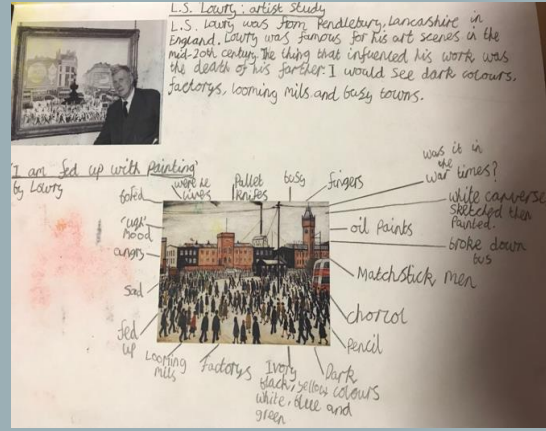 L.S. Lowry: artist study
L.S. Lowry was from Pendlebury, Lancashire in
England. Lowry was famous for his art scenes in the
mid-20th century. The thing that influenced his work was
the death of his farther. I would see dark colours,
factorys, looming mils and busy towns.
'I am fed up with painting'
by Lowry
bored
were he lives
Pallet knifes
busy
fingers
was it in the war times?
white canverse sketched then painted.
'ugh' mood
oil paints
broke down bus
angry
Matchstick men
sad
chorcol
fed up
pencil
Looming mils
factorys
Ivory black, yellow white, blue and green
Dark colours